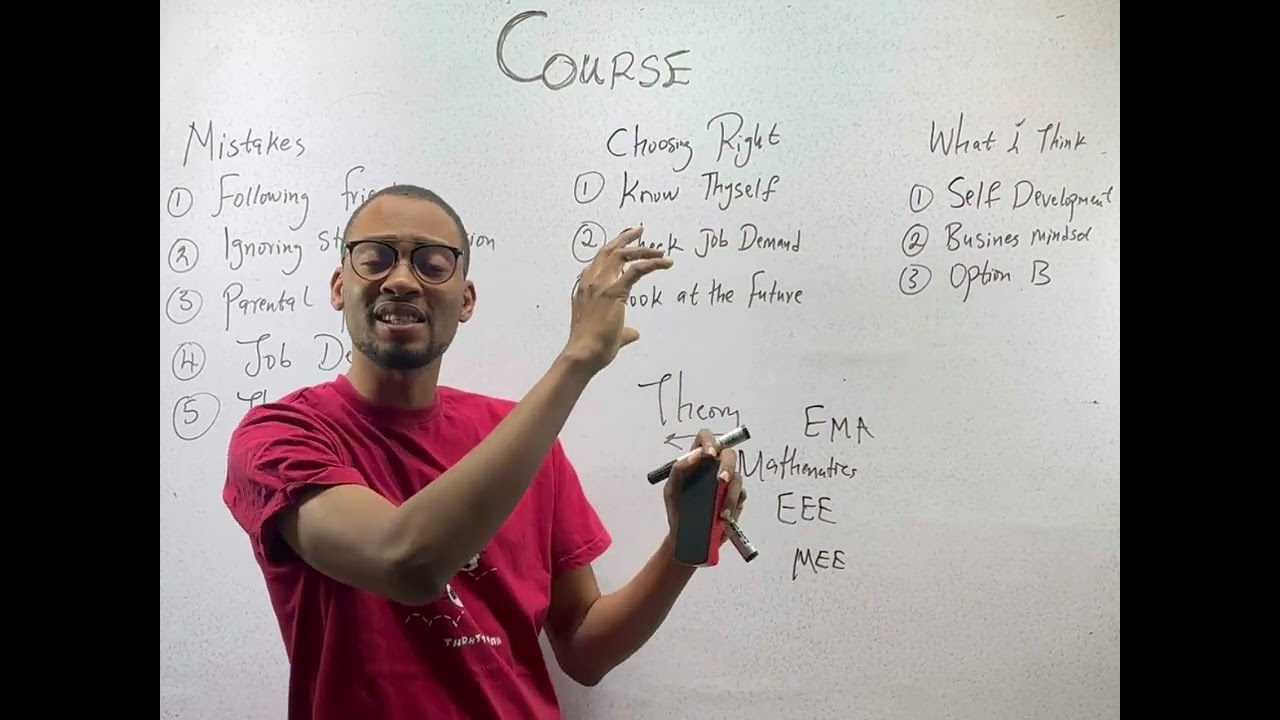 COURSE
Mistakes
① Following
② Ignoring
③ Parental
④ Job
⑤
Choosing Right
① Know Thyself
② Check Job Demand
Look at the future
What I Think
① Self Development
② Busines mindset
③ Option B
Theory
EMA
Mathematics
EEE
MEE